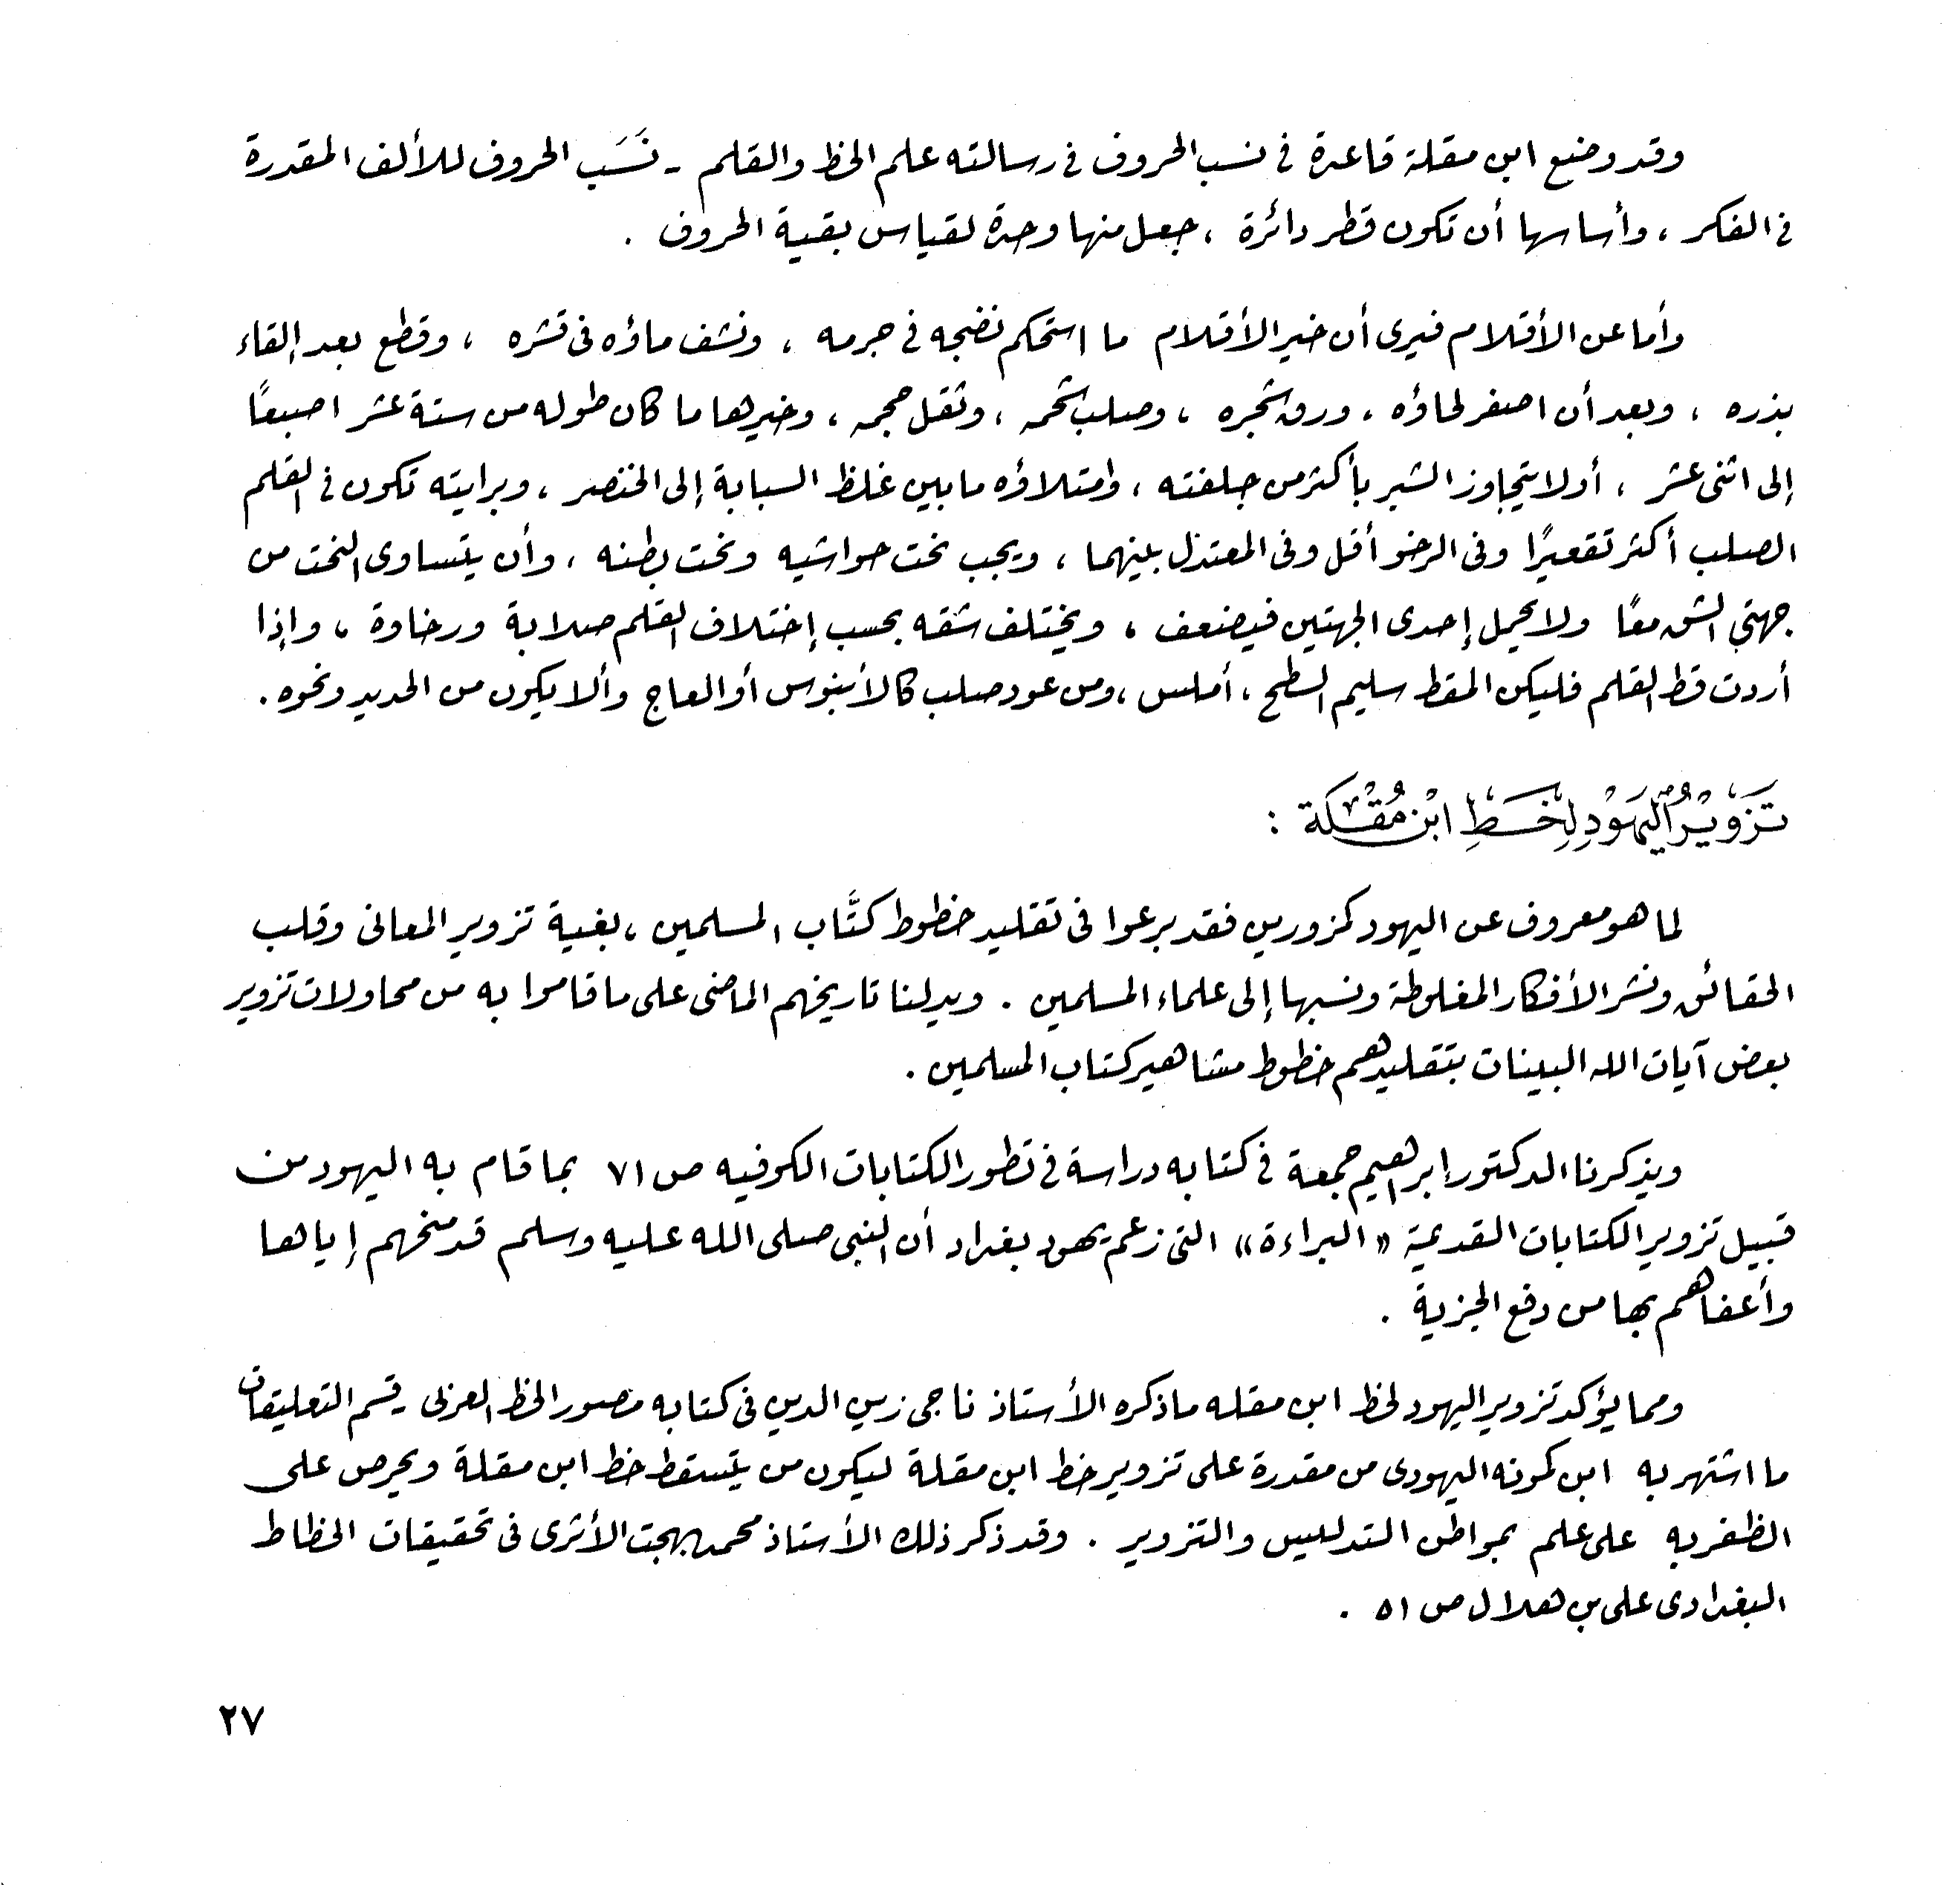 وقد وضع ابن مقلة قاعدة في نسب الحروف في رسالته علم الخط والقلم - نَسَب الحروف للألف المقدرة
في الفكر ، وأساسها أن تكون قطر دائرة ، جعل منها وحدة لقياس بقية الحروف .
وأما عن الأقلام فيرى أن خير الأقلام ما استحكم نضجه في جرمه ، ونشف ماؤه في قشره ، وقطع بعد إلقاء
بذره ، وبعد أن اصفر لحاؤه ، ورق شجره ، وصلب شحمه ، وثقل حجمه ، وخيرها ما كان طوله من ستة عشر اصبعًا
إلى اثنى عشر ، أو لا يتجاوز الشبر بأكثر من جلفته ، وامتلاؤه ما بين غلظ السبابة إلى الخنصر ، وبرايته تكون في القلم
الصلب أكثر تقعيرًا وفي الرخو أقل وفي المعتدل بينهما ، ويجب نحت حواشيه ونحت بطنه ، وأن يتساوى النحت من
جهتي الشق معًا ولا يحمل إحدى الجهتين فيضعف ، ويختلف شقه بحسب إختلاف القلم صلابة ورخاوة ، وإذا
أردت قط القلم فليكن المقط سليم السطح ، أملس ، ومن عود صلب كالأبنوس أو العاج وألا يكون من الحديد ونحوه .
تَزْوِيْرُ اليَهُوْدِ لِخَطِ ابْن مُقْلَة :
لما هو معروف عن اليهود كمزورين فقد برعوا في تقليد خطوط كتَّاب المسلمين ، بغية تزوير المعاني وقلب
الحقائق ونشر الأفكار المغلوطة ونسبها إلى علماء المسلمين . ويدلنا تاريخهم الماضي على ما قاموا به من محاولات تزوير
بعض آيات الله البينات بتقليدهم خطوط مشاهير كتاب المسلمين .
ويذكرنا الدكتور إبراهيم جمعة في كتابه دراسة في تطور الكتابات الكوفيه ص ٧١ بما قام به اليهود من
قبيل تزوير الكتابات القديمة « البراءة » التي زعم يهود بغداد أن النبي صلى الله عليه وسلم قد منحهم إياها
وأعفاهم بها من دفع الجزية .
ومما يؤكد تزوير اليهود لخط ابن مقله ما ذكره الأستاذ ناجي زين الدين في كتابه مصور الخط العربي قسم التعليقات
ما اشتهر به ابن كمونه اليهودى من مقدرة على تزوير خط ابن مقلة ليكون من يتسقط خط ابن مقلة ويحرص على
الظفر به على علم بمواطن التدليس والتزوير . وقد ذكر ذلك الأستاذ محمد بهجت الأثرى في تحقيقات الخطاط
البغدادى على بن هلال ص ٥١ .
٢٧